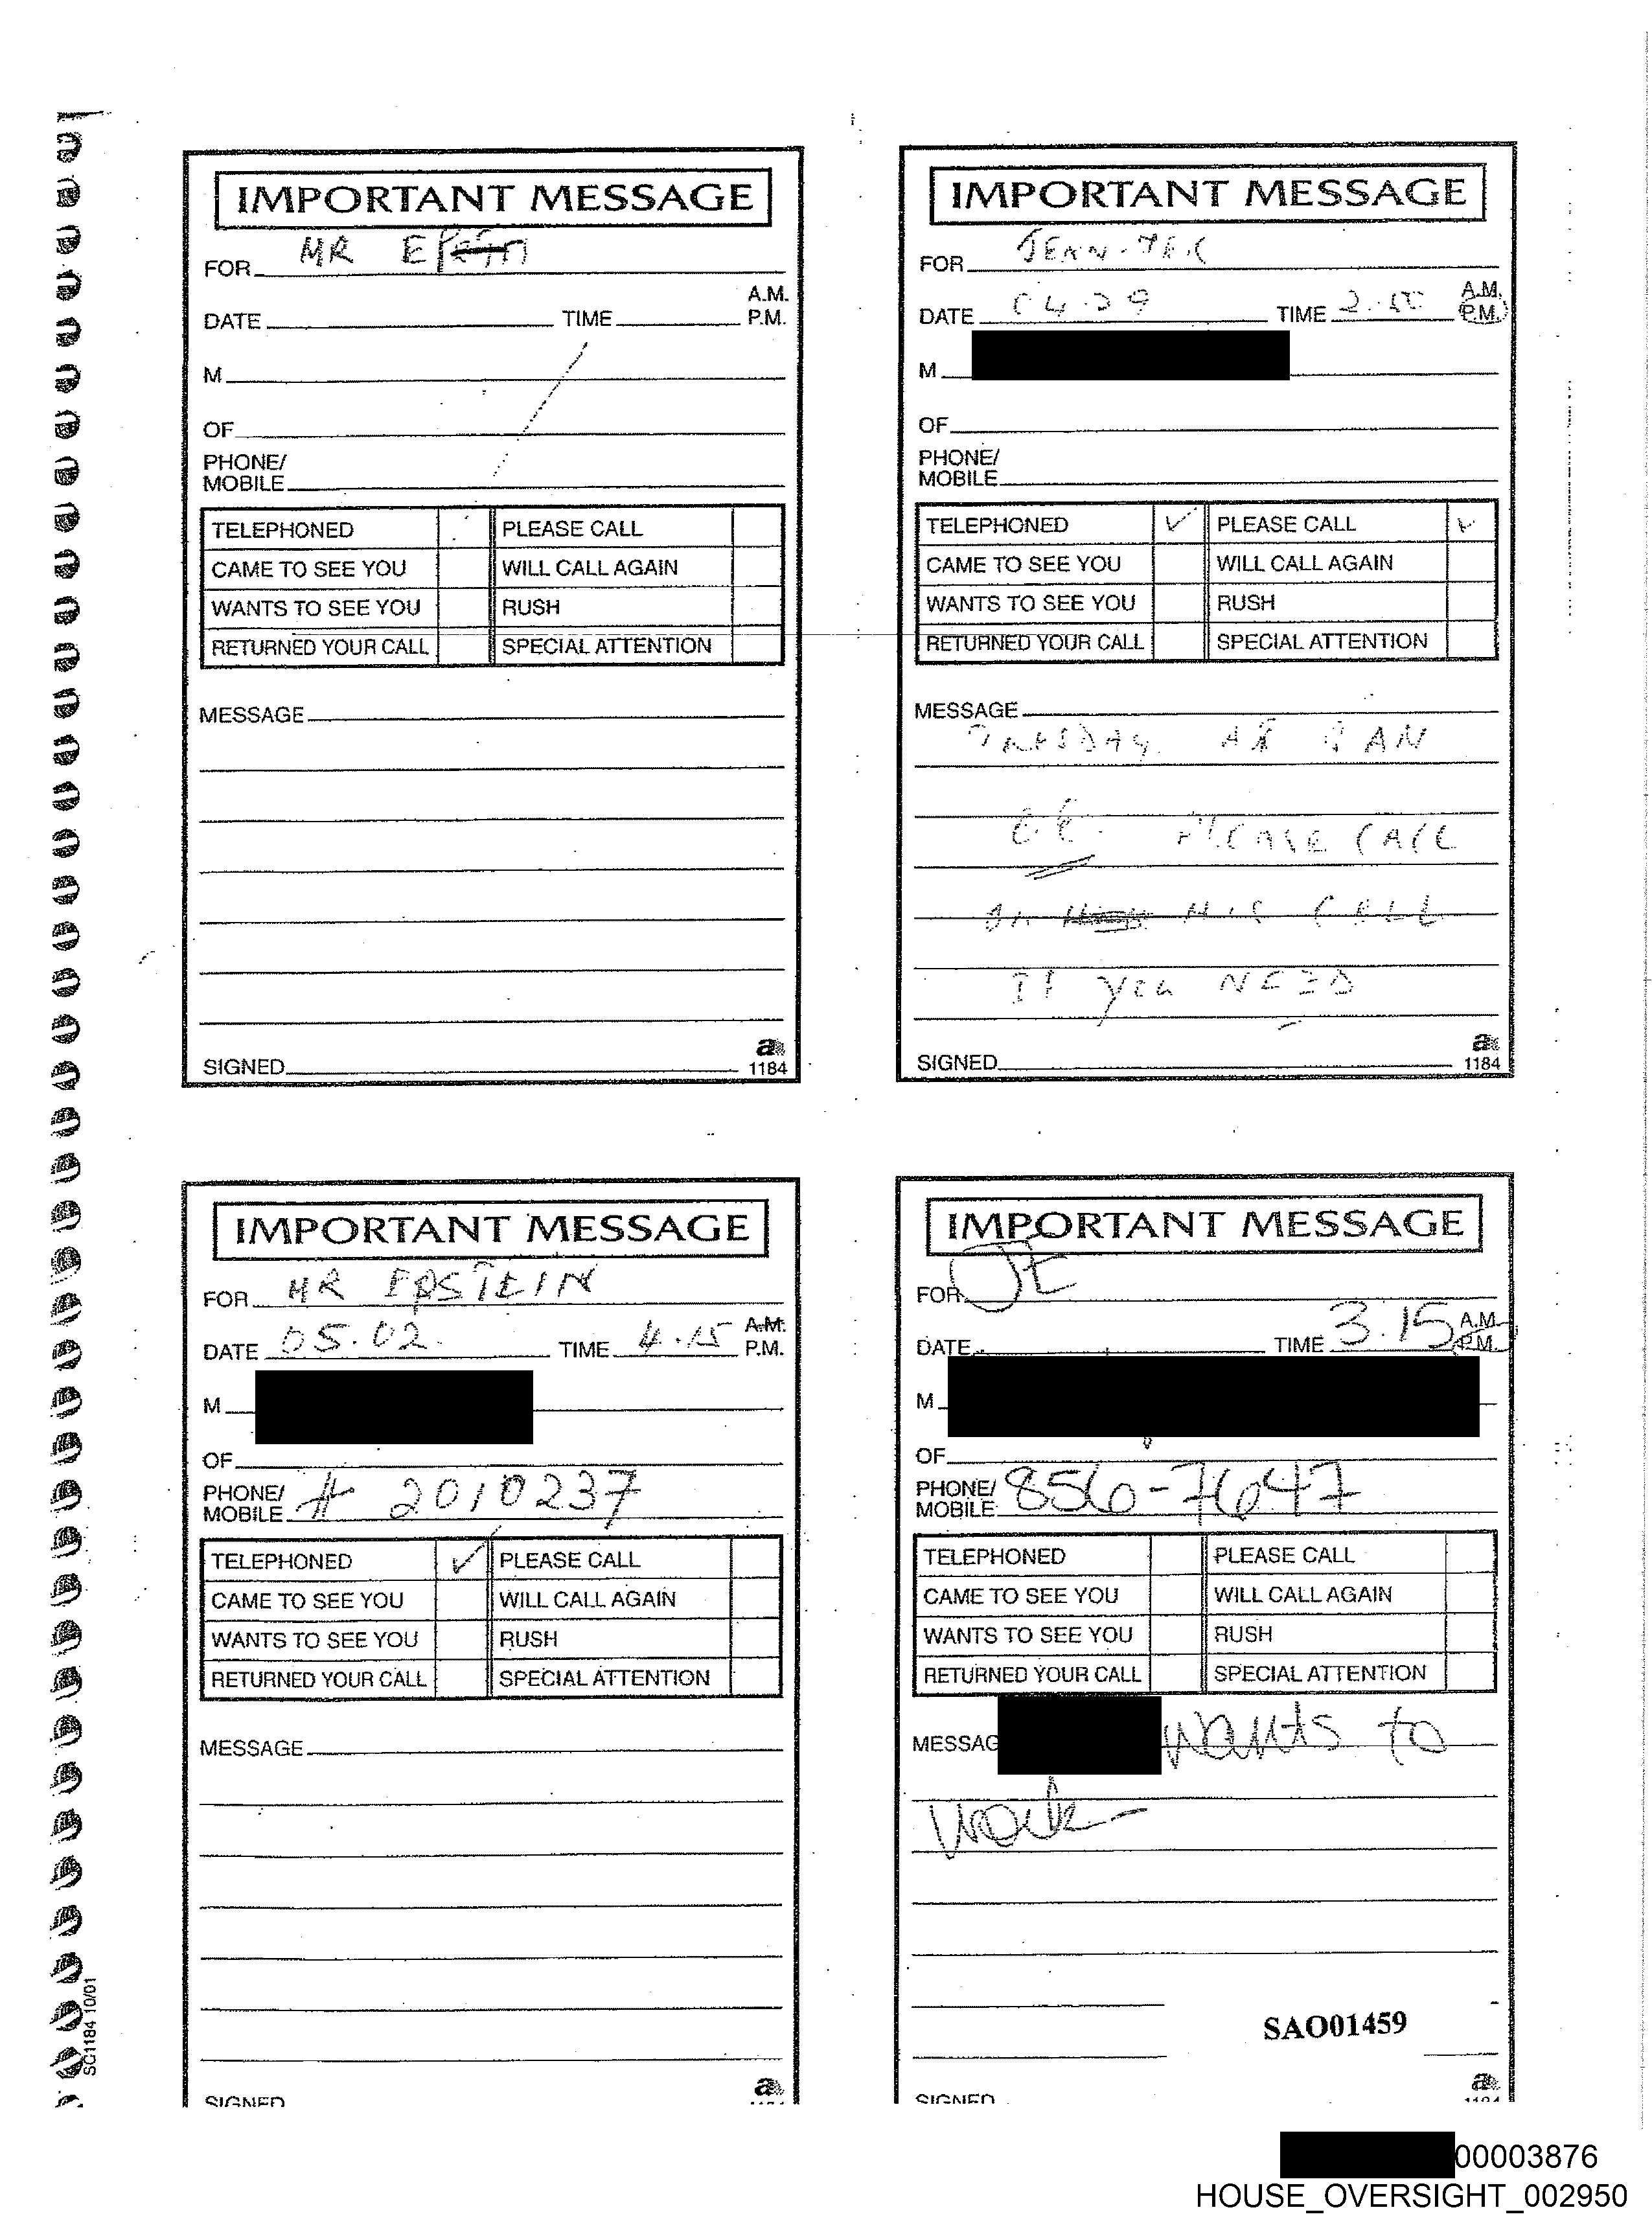 IMPORTANT MESSAGE
FOR MR
DATE TIME A.M.
P.M.
M
OF
PHONE/
MOBILE
TELEPHONED PLEASE CALL
CAME TO SEE YOU WILL CALL AGAIN
WANTS TO SEE YOU RUSH
RETURNED YOUR CALL SPECIAL ATTENTION
MESSAGE
SIGNED
a
1184
IMPORTANT MESSAGE
FOR
DATE 04.29 TIME A.M.
P.M.
M
OF
PHONE/
MOBILE
TELEPHONED ✓ PLEASE CALL ✓
CAME TO SEE YOU WILL CALL AGAIN
WANTS TO SEE YOU RUSH
RETURNED YOUR CALL SPECIAL ATTENTION
MESSAGE
PLEASE CALL
HIS CELL
If you NEED
SIGNED
a
1184
IMPORTANT MESSAGE
FOR MR EPSTEIN
DATE 05.02. TIME 4.15 A.M.
P.M.
M
OF
PHONE/
MOBILE # 2010237
TELEPHONED ✓ PLEASE CALL
CAME TO SEE YOU WILL CALL AGAIN
WANTS TO SEE YOU RUSH
RETURNED YOUR CALL SPECIAL ATTENTION
MESSAGE
SIGNED
a
IMPORTANT MESSAGE
FOR JE
DATE TIME 3.15 A.M.
P.M.
M
OF
PHONE/
MOBILE 856-7647
TELEPHONED PLEASE CALL
CAME TO SEE YOU WILL CALL AGAIN
WANTS TO SEE YOU RUSH
RETURNED YOUR CALL SPECIAL ATTENTION
MESSAG wants to
work -
SAO01459
SIGNED
a
SC1184 10/01
00003876
HOUSE_OVERSIGHT_002950